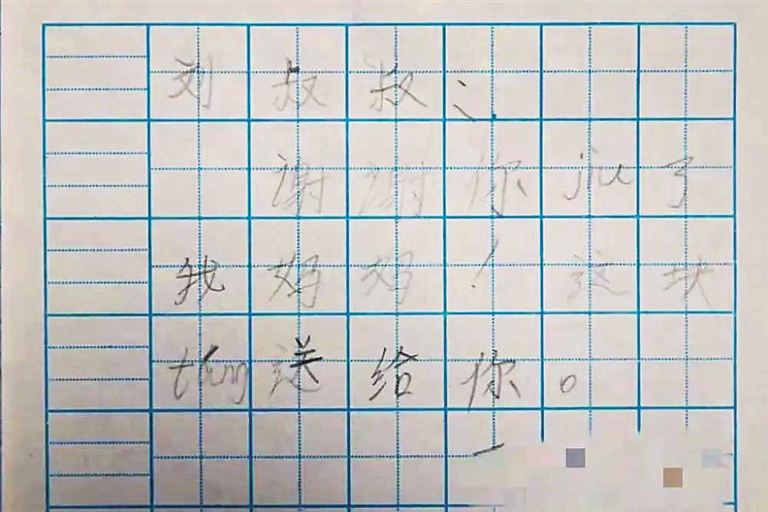 刘叔叔：
谢谢你jiu了
我妈妈！这块
táng送给你。